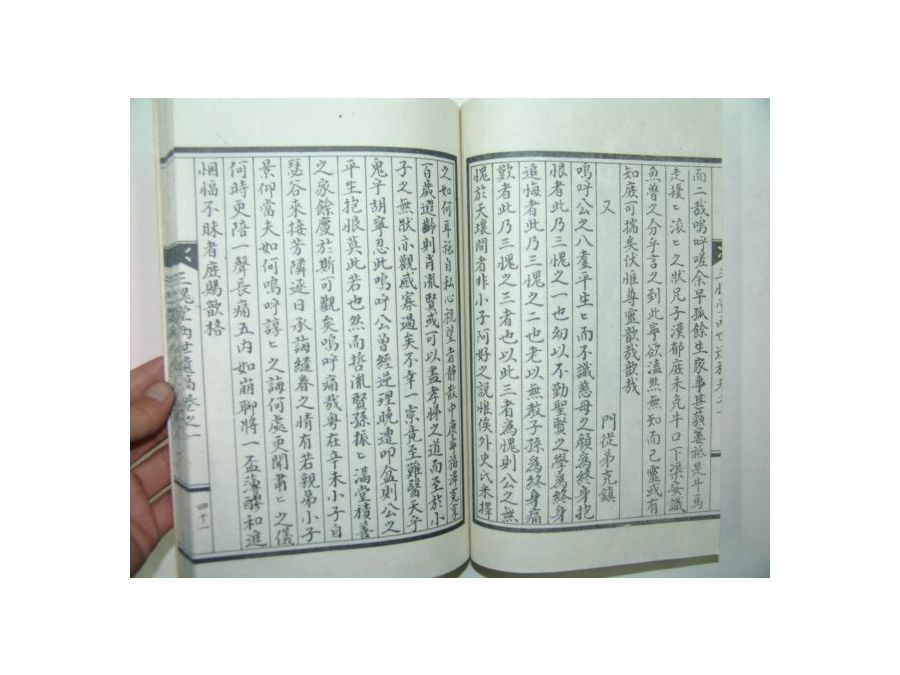 而二哉嗚呼嗟余早孤餘生家事甚
走擾〻滾〻之狀兄子漢郁庶未免牛口下
魚魯之分乎言之到此寧欲溘然無知而己靈或有
知庶可揣矣伏惟尊靈歆哉歆哉
又
門從弟克鎮
嗚呼公之八耋平生〻而不識慈母之顔爲終身抱
恨者此乃三愧之一也幼以不勤聖賢之學爲終身
追悔者此乃三愧之二也老以無教子孫爲終身痛
歎者此乃三愧之三者也以此三者爲愧則公之無
愧於天壤間者非小子阿好之說惟俟外史氏米擇
之如何耳
百歲遐齡則肖胤賢或可以盡孝悌之道而至於小
子之無狀亦觀感寡過矣不幸一宗竟至難醫天乎
鬼乎胡寧忍此嗚呼公曾經逆理晩遭叩盆則公之
平生抱恨莫此若也然而哲胤賢孫振〻滿堂積善
之家餘慶於斯可觀矣嗚呼痛哉粤在辛未小子自
瑟谷來接芳隣逐日承誨繾眷之情有若親弟小子
景仰當夫如何嗚呼諄〻之誨何處更聞肅〻之儀
何時更陪一聲長痛五內如崩聊將一盃薄醪和進
悃愊不昧者庶賜歆格
三愧堂兩世遺稿卷之一
四十一